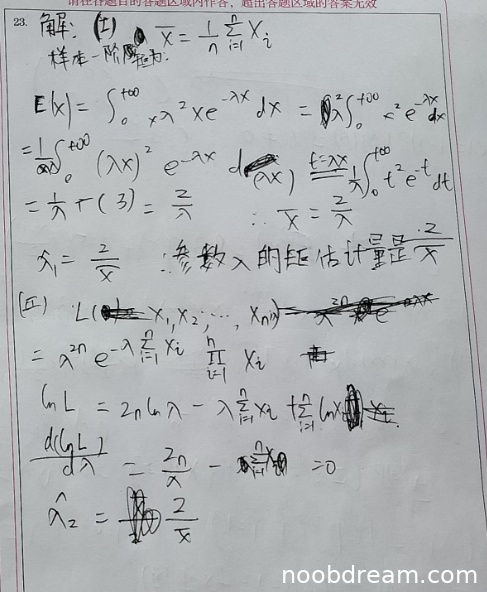 请在各题目的答题区域内作答,超出各题区域的答案无效
23. 解: (I) x̄ = 1/n Σ_{i=1}^{n} X_i
样本一阶矩为:
E(x) = ∫_0^{+∞} xλ²xe^{-λx}dx = λ²∫_0^{+∞} x²e^{-λx}dx
= 1/λ ∫_0^{+∞} (λx)² e^{-λx} d(λx) t=λx 1/λ ∫_0^{+∞} t²e^{-t}dt
= 1/λ Γ(3) = 2/λ ∴ x̄ = 2/λ
λ̂₁ = 2/x̄ ∴参数λ的矩估计量是 2/x̄
(II) L(X₁,X₂,…,Xₙ;λ)
= λ^{2n} e^{-λΣ_{i=1}^{n} X_i} ∏_{i=1}^{n} X_i
ln L = 2n ln λ - λ Σ_{i=1}^{n} X_i + Σ_{i=1}^{n} ln X_i
d(ln L)/dλ = 2n/λ - Σ_{i=1}^{n} X_i = 0
λ̂₂ = 2/x̄
noobdream.com